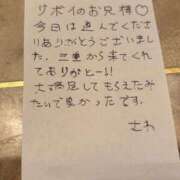 リボイのお兄様♡
今日は遊んでくださ
りありがとうございまし
た。三重から来てくれ
てありがとー!!
大満足してもらえたみ
たいで良かったです。
さわ